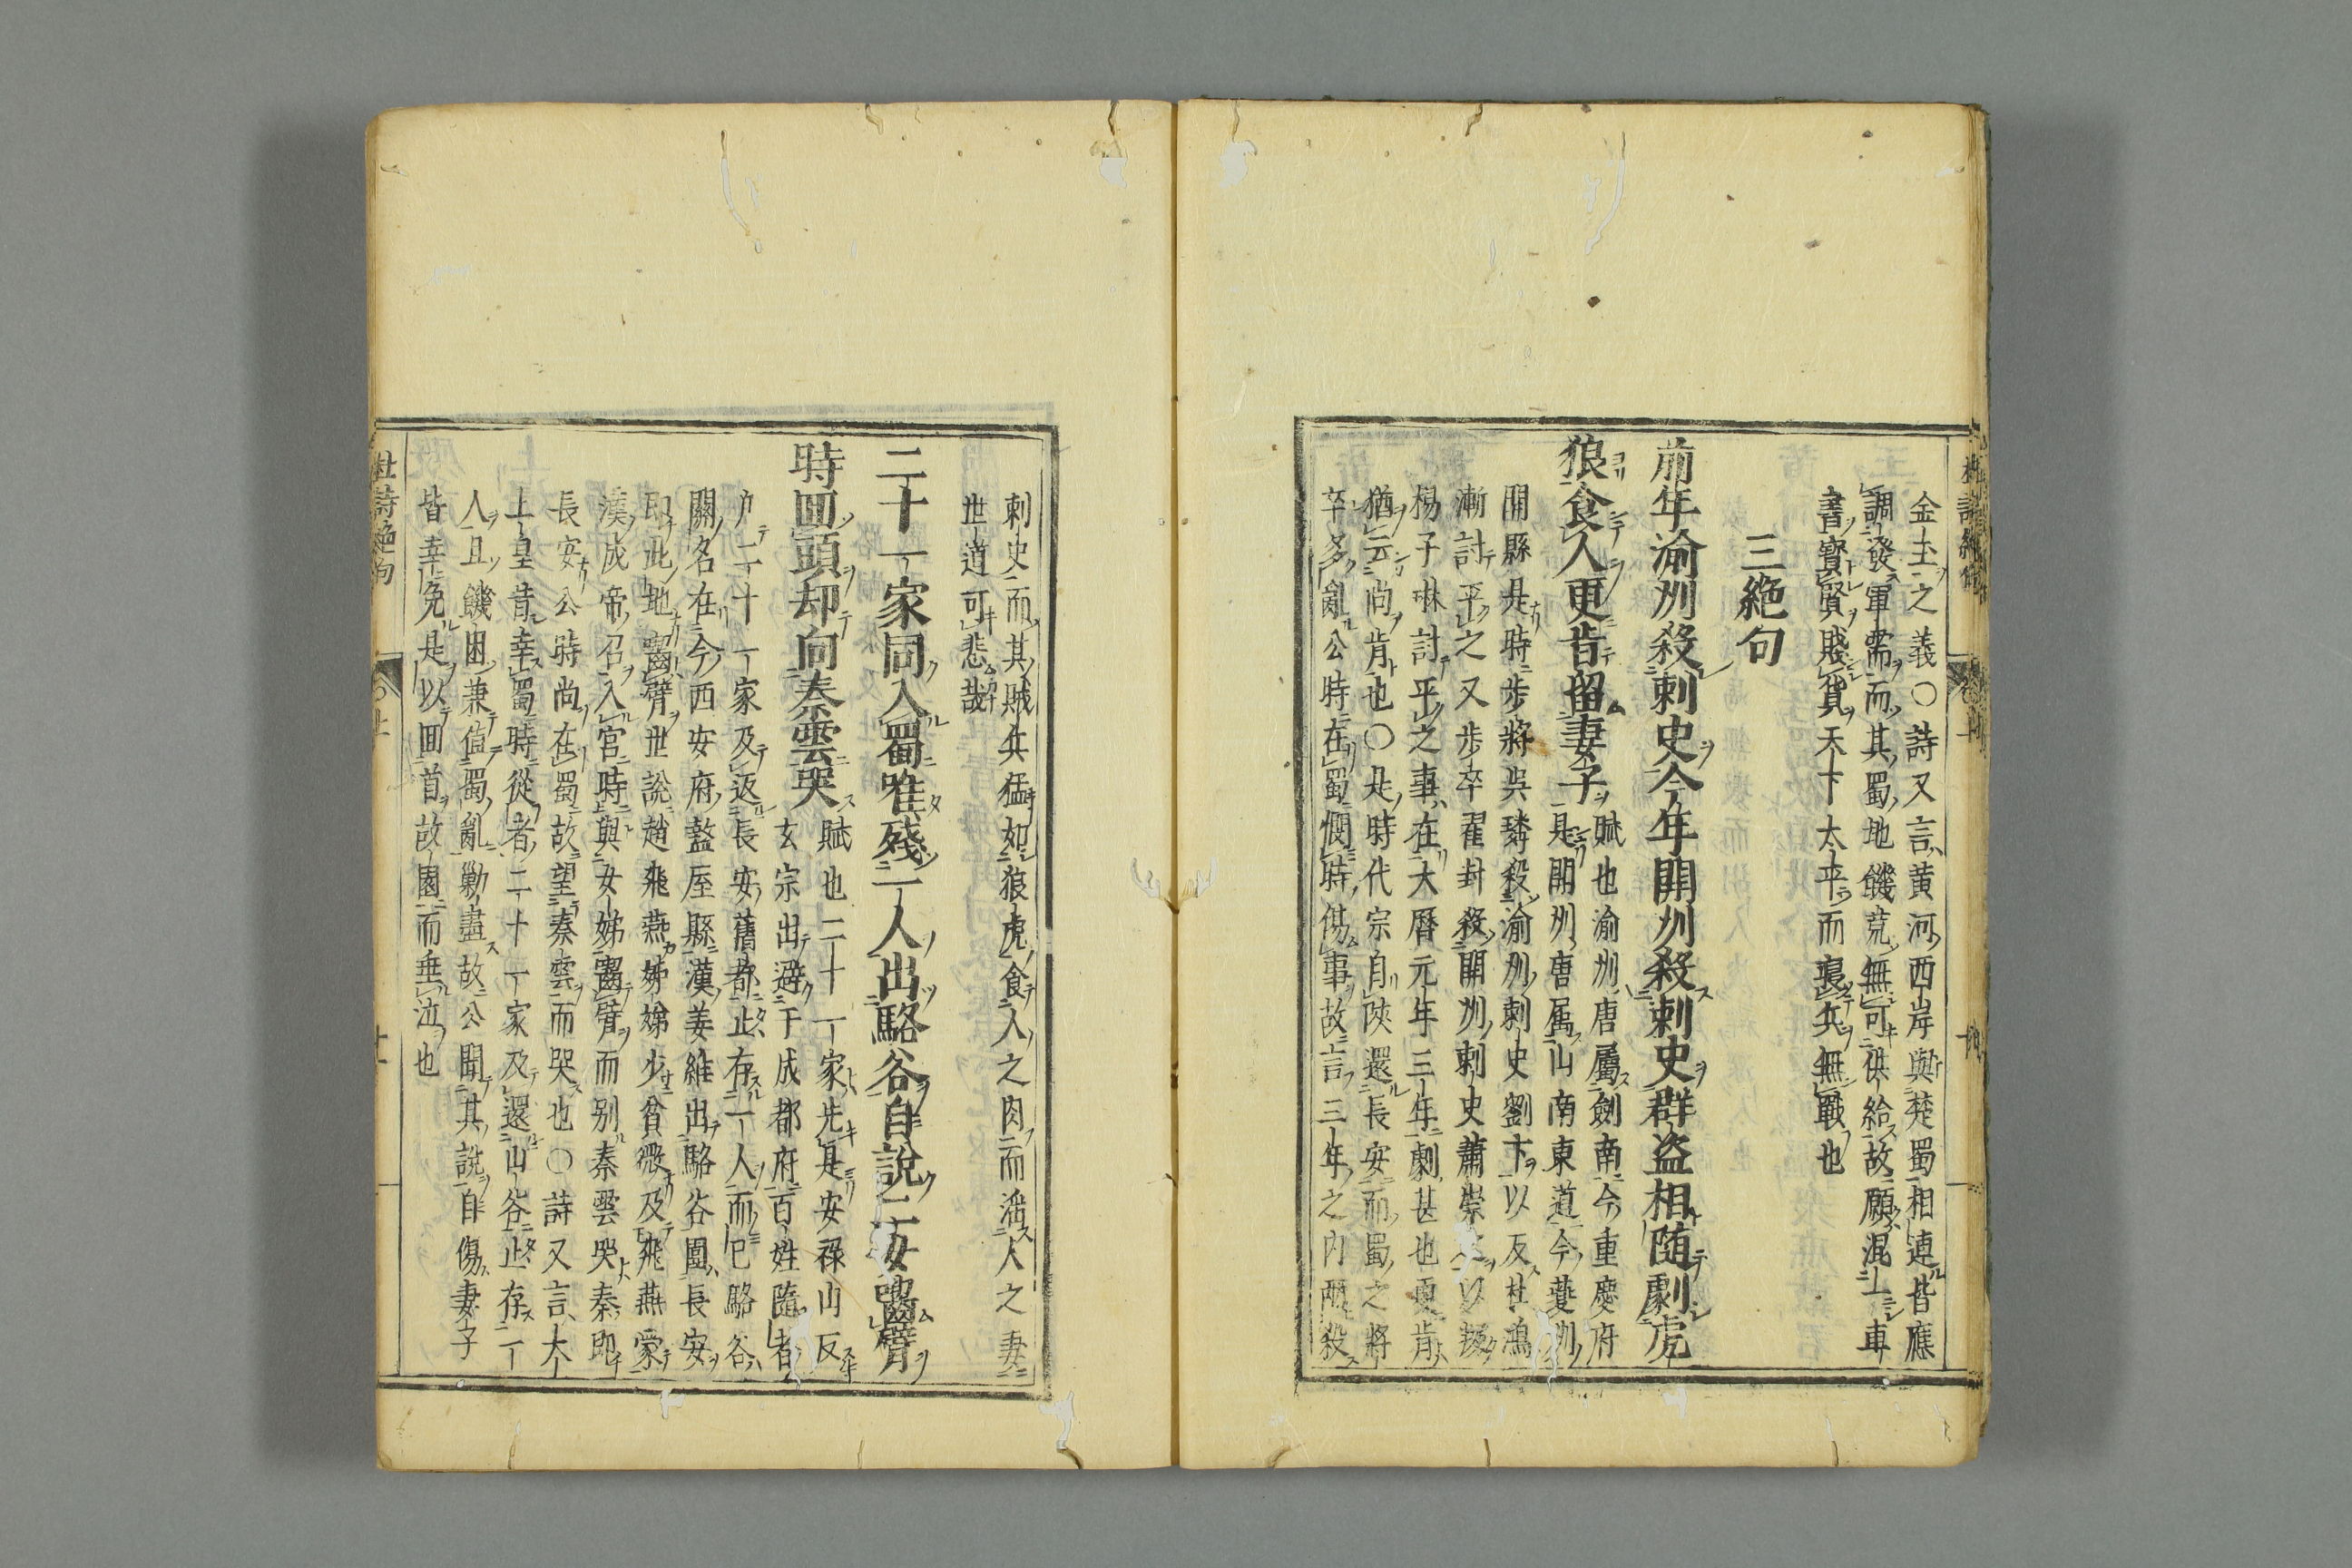 金玉之義〇詩又言黄河西岸與楚蜀相連皆應
調發軍需而其蜀地饑荒無可供給故願混一車
書寳賢賤貨天下太平而寢兵無戰也
三絶句
前年渝州殺刺史今年開州殺刺史群盗相随劇虎
狼食人更肯留妻子
賦也渝州唐屬劍南今重慶府
是開州唐属山南東道今夔州
開縣是時歩將吳璘殺渝州刺史劉卞以反杜鴻
漸討平之又歩卒翟封殺開州刺史蕭崇之以
楊子琳討平之事在大曆元年三年劇甚也更肯
猶云尚肯也〇是時代宗自陝還長安而蜀之將
卒多亂公時在蜀憫時傷事故言三年之内兩殺
刺史而其賊兵猛如狼虎食人之肉而滛人之妻
世道可悲哉
二十一家同入蜀唯殘一人出駱谷自說二女嚙臂
時回頭却向秦雲哭
賦也二十一家先是安禄山反
玄宗出避于成都府百姓隨者
户二十一家及返長安舊都止存一人而已駱谷
關名在今西安府盩厔縣漢姜維出駱谷圍長安
即此地嚙臂世說趙飛燕姊娣少貧微及飛燕
漢成帝召入宫時與女娣嚙臂而别秦雲哭秦即
長安公時尚在蜀故望秦雲而哭也〇詩又言大
上皇昔幸蜀時從者二十一家及還山谷止存一
人且饑困兼值蜀亂勦盡故公聞其說自傷妻子
皆幸免是以回首故園而垂泣也
杜詩絶句